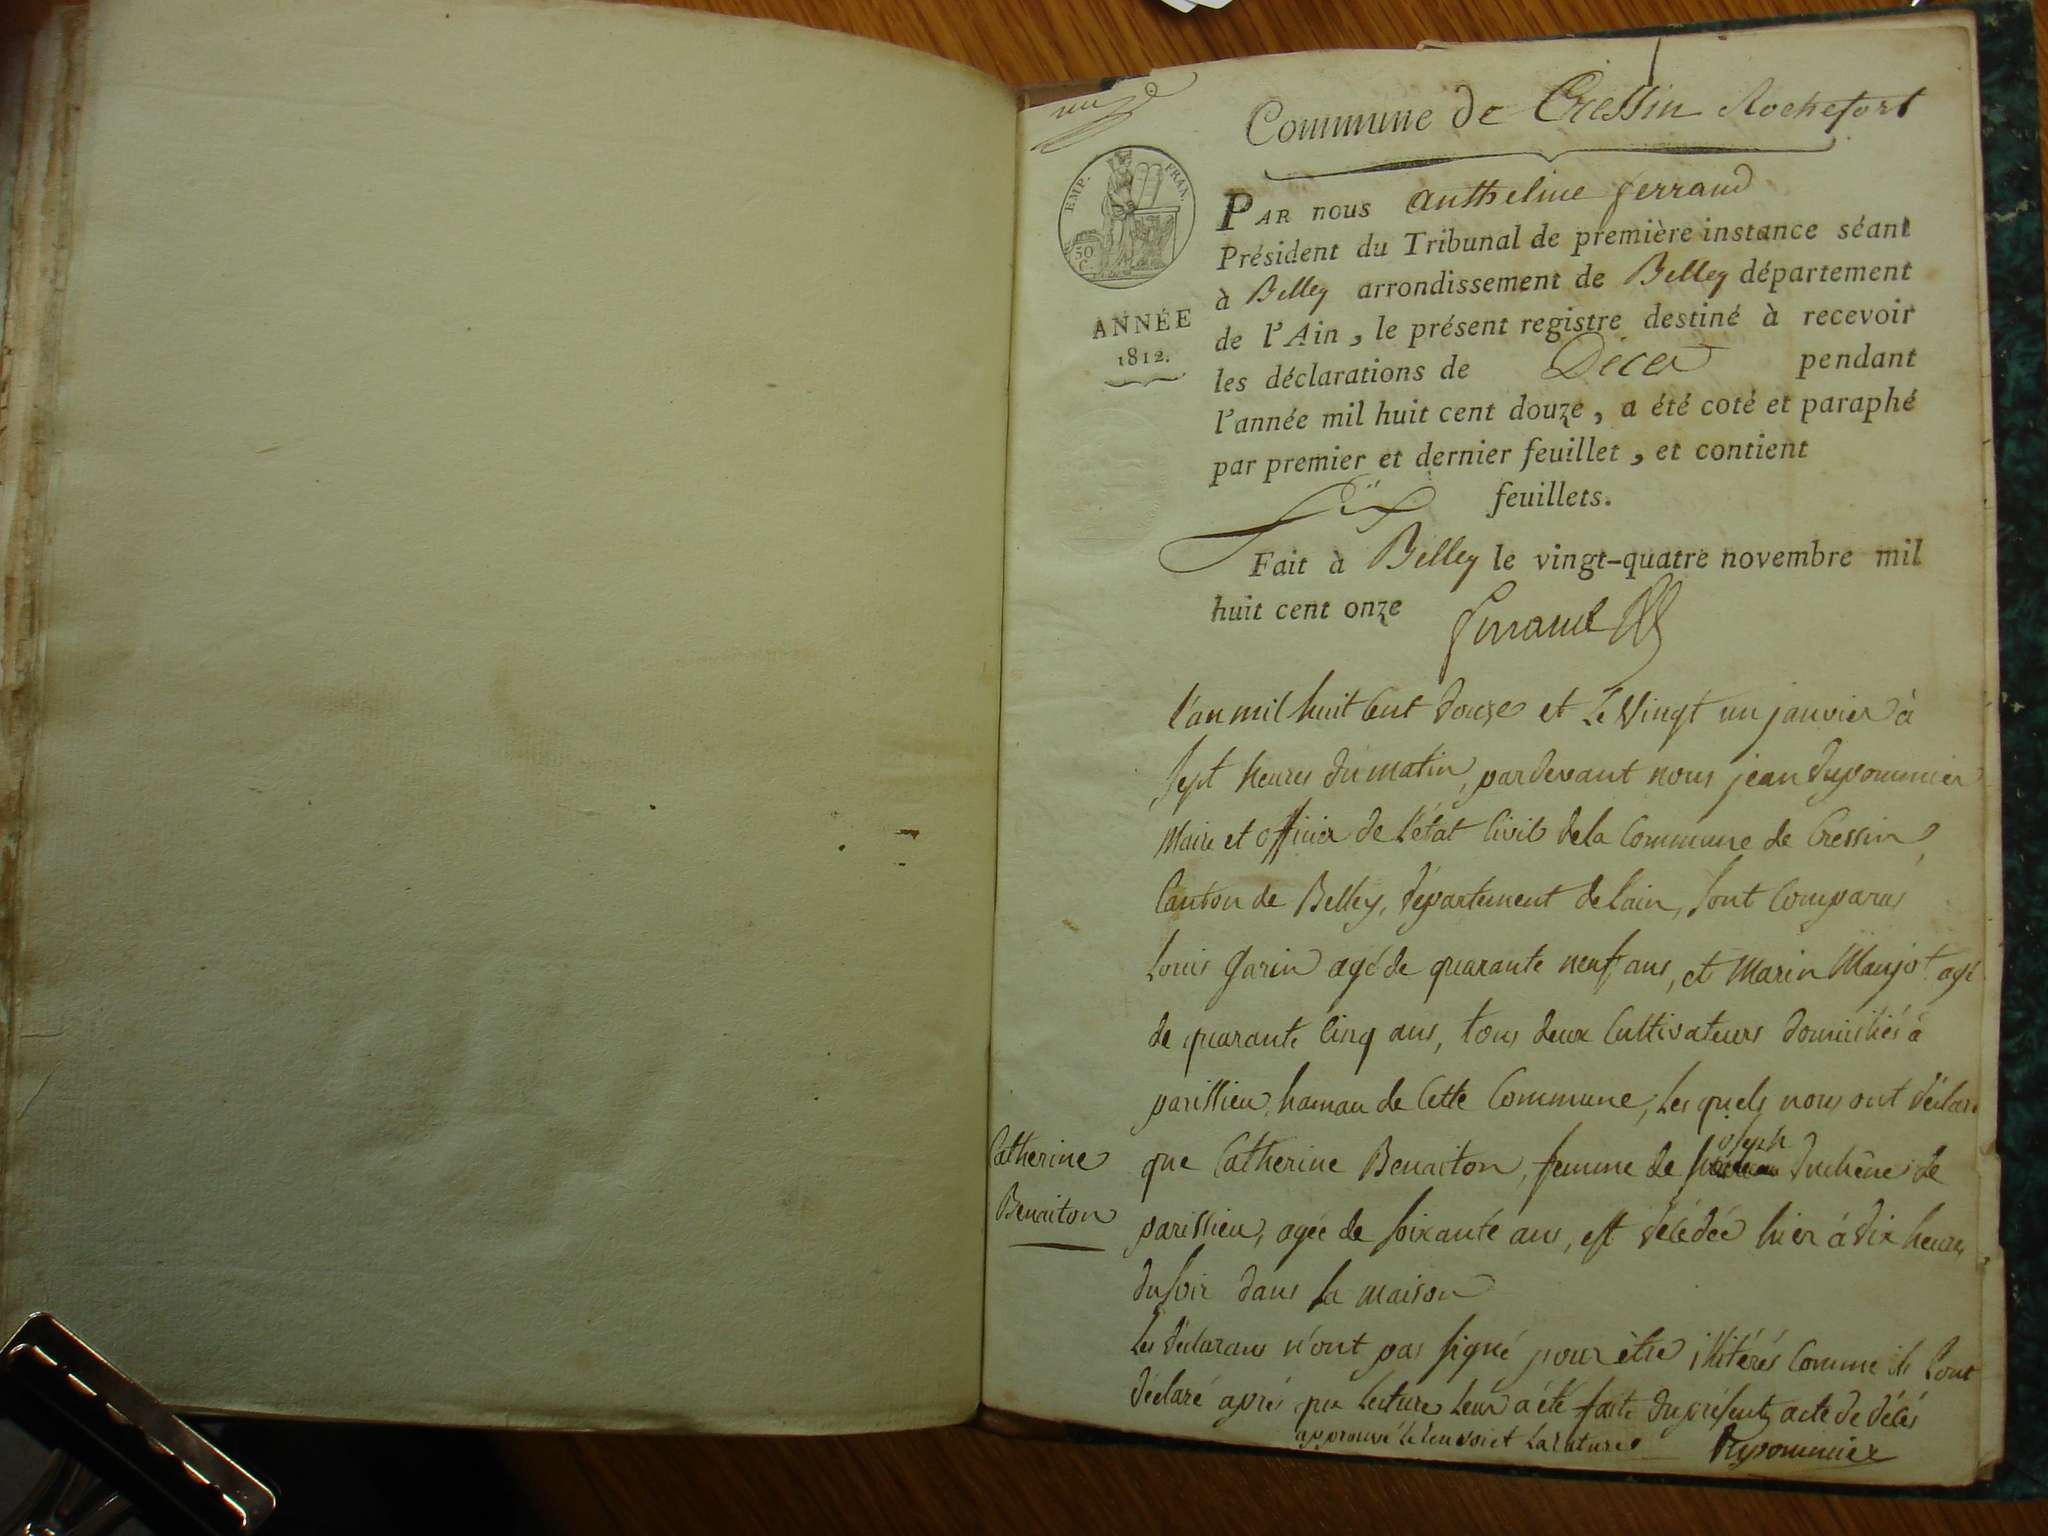 Commune de Cressin Rochefort
EMP. FRAN.
50
C.
ANNÉE
1812.
PAR nous anthelme ferrand
Président du Tribunal de première instance séant
à Belley arrondissement de Belley département
de l'Ain, le présent registre destiné à recevoir
les déclarations de Décès pendant
l'année mil huit cent douze, a été coté et paraphé
par premier et dernier feuillet, et contient
Six feuillets.
Fait à Belley le vingt-quatre novembre mil
huit cent onze
ferrand
l'an mil huit Cent douze et Le Vingt un janvier à
Sept heures du matin, pardevant nous jean Dupommier
Maire et officier de L'état Civil de la Commune de Cressin,
Canton de Belley, département de lain, Sont Comparus
Louis Garin agé de quarante neuf ans, et Marin Maujot agé
de quarante Cinq ans, tous deux Cultivateurs domiciliés à
parissieu, hamau de Cette Commune, Les quels nous ont déclaré
Catherine
Benaiton
joseph
que Catherine Benaiton, femme de duchêne de
parissieu, agée de Soixante ans, est décédée hier à dix heures
du Soir dans Sa maison
Les déclarans n'ont pas Signé pour être illitérés Comme ils L'ont
déclaré après que Lecture Leur a été faite du présent acte de décés
approuvé Le renvoi et La rature
Dupommier